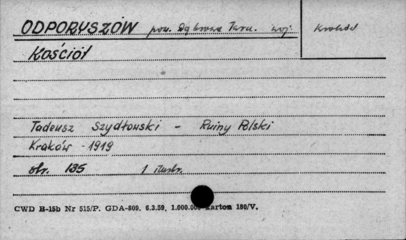 ODPORYSZÓW pow. Dąbrowa Tarn. woj. Kraków
Kościół
Tadeusz Szydłowski - Ruiny Polski
Kraków 1919
str. 135 1 ilustr.
CWD H-15b Nr 515/P. GDA-809. 6.3.59. 1.000.00 Karton 180/V.